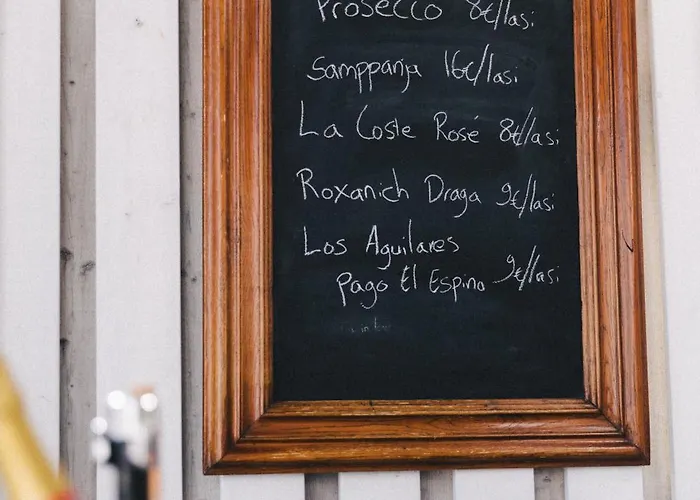 Prosecco 8€/lasi
Samppanja 16€/lasi
La Coste Rosé 8€/lasi
Roxanich Draga 9€/lasi
Los Aguilares
Pago El Espino 9€/lasi